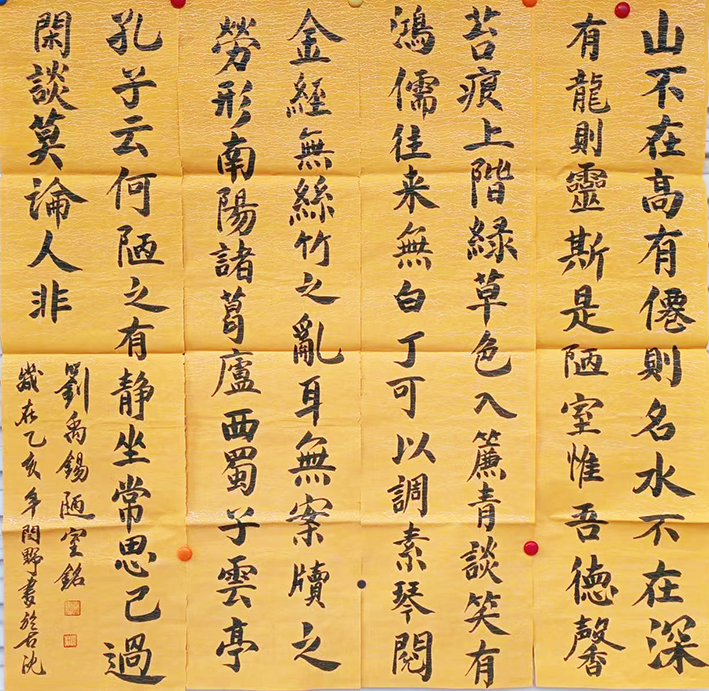 山不在高有僊則名水不在深
有龍則靈斯是陋室惟吾德馨
苔痕上階緑草色入簾青談笑有
鴻儒往来無白丁可以調素琴閱
金經無絲竹之亂耳無案牘之
勞形南陽諸葛廬西蜀子雲亭
孔子云何陋之有静坐常思己過
閑談莫論人非
劉禹錫陋室銘
歲在乙亥年閆野書於古沈